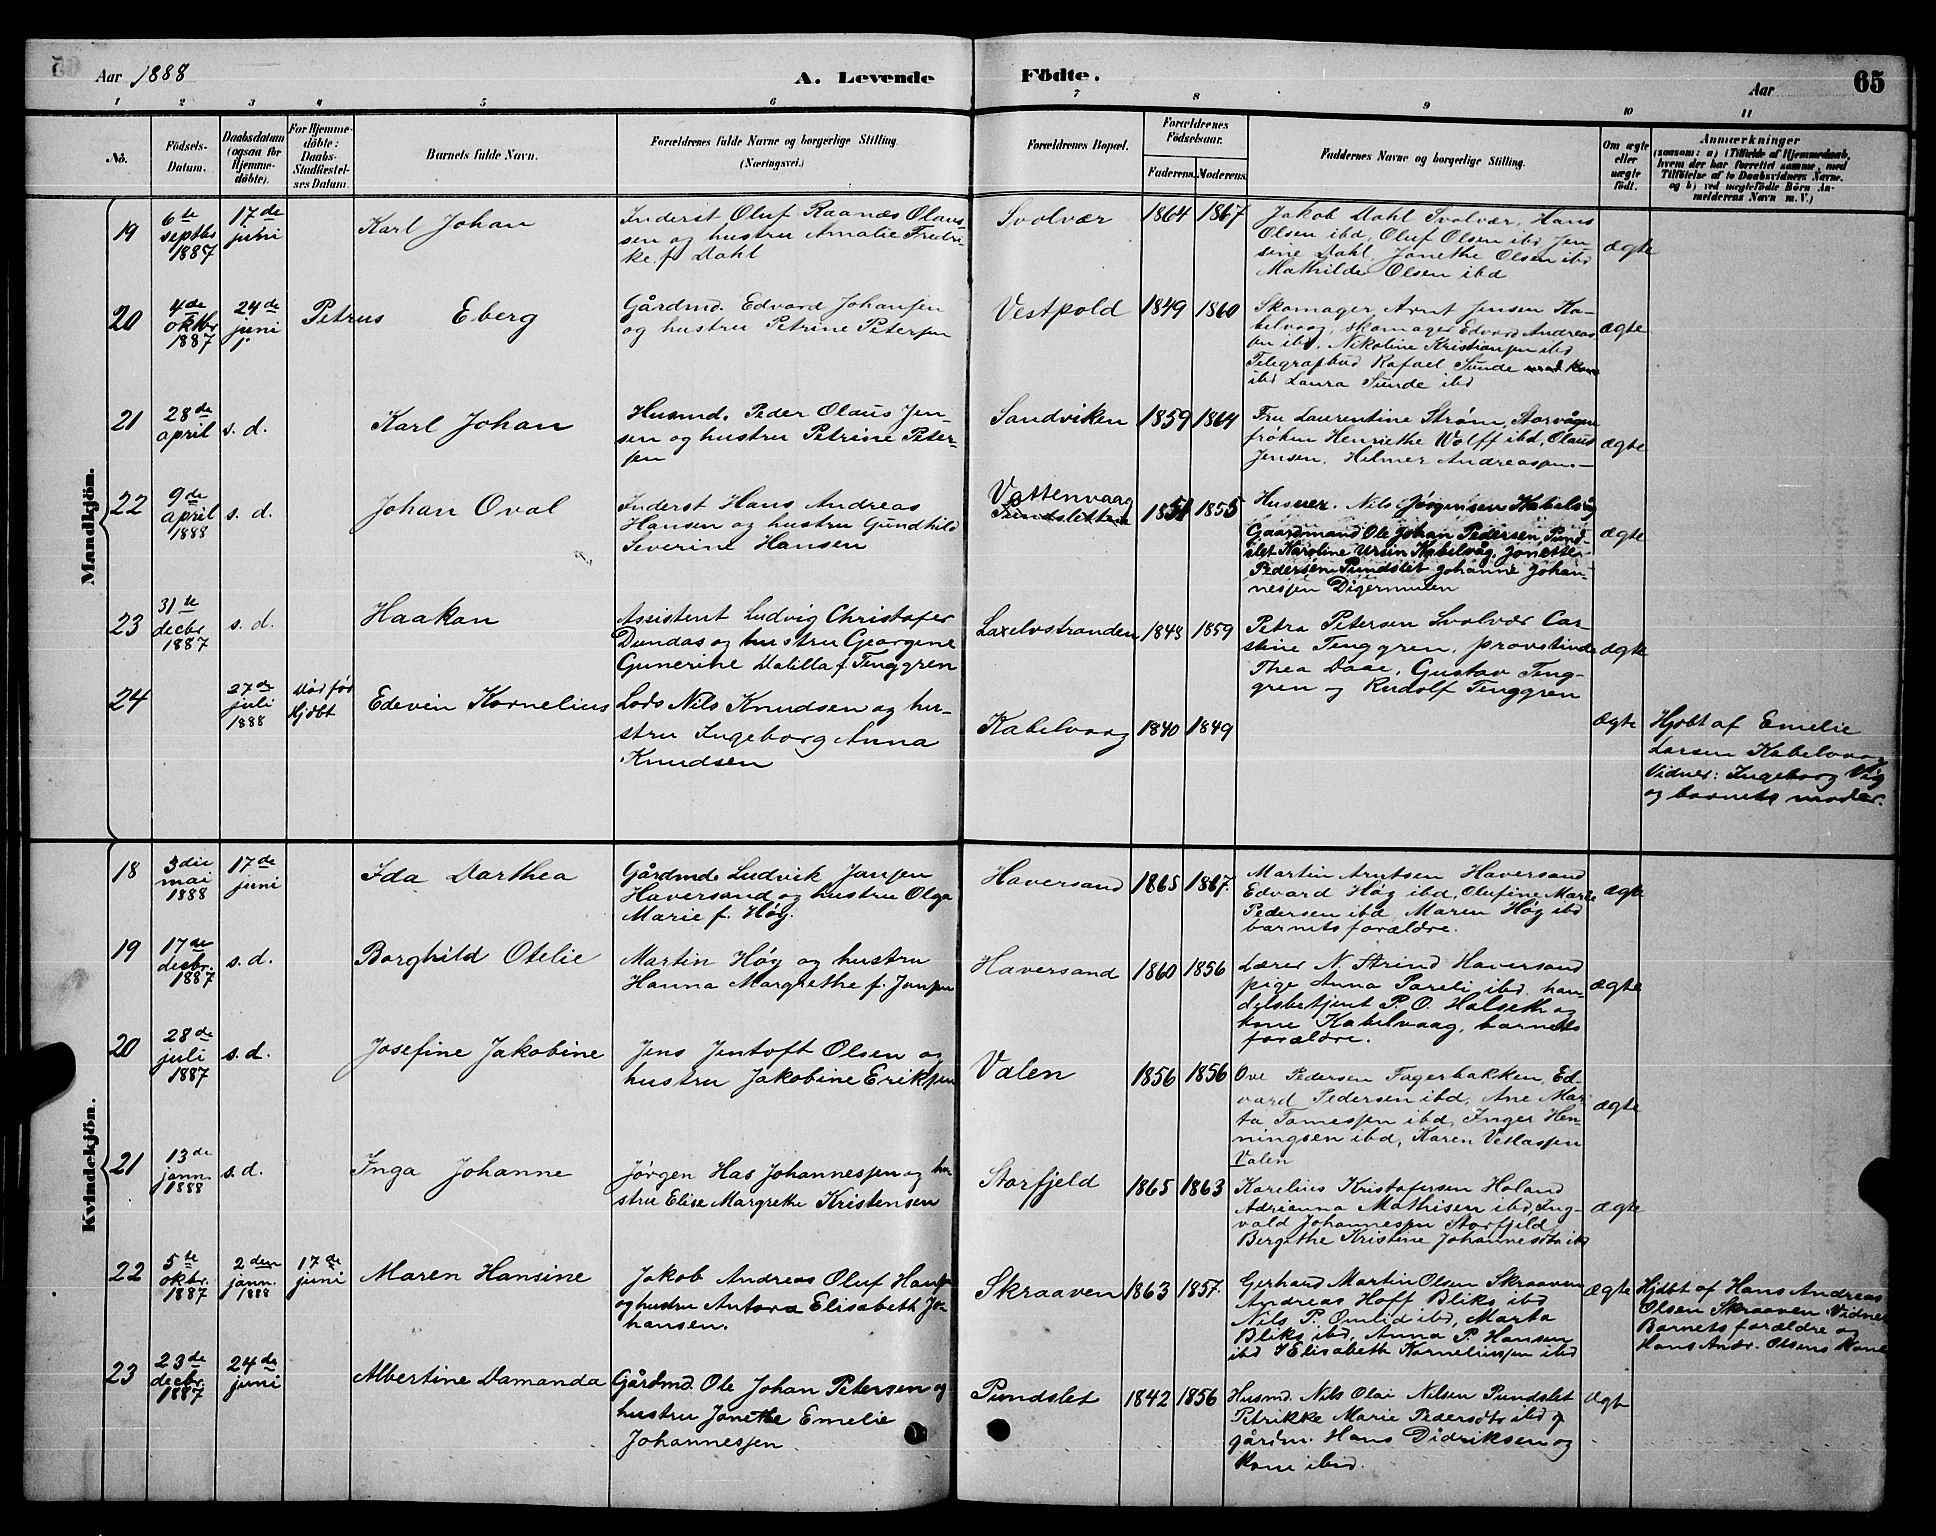 Aar 1888
A. Levende
Födte.
Aar
65
1 2 3 4 5 6 7 8 9 10 11
No.
Födsels-
Datum.
Daabsdatum
(ogsaa for
Hjemme-
döbte).
For Hjemme-
döbte:
Daabs-
Stadfæstel-
ses Datum.
Barnets fulde Navn.
Forældrenes fulde Navne og borgerlige Stilling
(Næringsvei.)
Forældrenes Bopæl.
Forældrenes
Födselsaar.
Faderens. Moderens.
Faddernes Navne og borgerlige Stilling.
Om ægte
eller
uægte
födt.
Anmærkninger
(saasom: a) i Tilfælde af Hjemmedaab,
hvem der har forrettet samme, med
Tilföielse af to Daabsvidners Navne.
og b) ved uægtefödte Börn An-
melderens Navn m. V.)
Mandkjön.
19
6te
septbr
1887
17de
juni
Karl Johan
Inderst Oluf Raanæs Olaus-
sen og hustru Amalie Fredri-
ke f. Dahl
Svolvær
1864 1867
Jakob Dahl Svolvær, Hans
Olsen ibd, Oluf Olsen ibd, Jen-
sine Dahl, Janethe Olsen ibd
Mathilde Olsen ibd
ægte
20
4de
oktbr
1887
24de
juni
Petrus Eberg
Gårdmd. Edvard Johansen
og hustru Petrine Petersen
Vestpold
1849 1860
Skomager Arnt Jensen Ka-
belvaag, skomager Edvard Andreas
sen ibd, Nikoline Kristiansen ibd
Telegrafbud Rafael Sunde med kone
ibd Laura Sunde ibd
ægte
21
28de
april
s. d.
Karl Johan
Husmd. Peder Olaus Jen-
sen og hustru Petrine Peter-
sen
Sandviken
1859 1864
Fru Laurentine Strøm, Storvågen
frøken Henriethe Wolff ibd, Olaus
Jensen, Helmer Andreassen.
ægte
22
9de
april
1888
s. d.
Johan Oval
Inderst Hans Andreas
Hansen og hustru Gundhild
Severine Hansen
Vattenvaag
Pundsletten
1851 1855
Husuer. Nils Jörgensen Kabelvåg
Gaardmand Ole Johan Pedersen, Pund-
slet Karoline Ursin Kabelvåg, Jonette
Pedersen Pundslet Johanne Johan-
nesen Digermulen
ægte
23
31te
decbr
1887
s. d.
Haakan
Assistent Ludvig Christofer
Dundas og hustru Georgine
Gunerine Matilla f. Tenggren
Laxelvstranden
1848 1859
Petra Petersen Svolvær Car-
stine Tenggren, provstinde
Thea Daae, Gustav Teng-
gren og Rudolf Tenggren
ægte
24
27de
juli
1888
Død fød
Hjdbt
Edevin Kornelius
Lods Nils Knudsen og hu-
stru Ingeborg Anna
Knudsen
Kabelvaag
1840 1849
ægte
Hjdbt af Emelie
Larsen Kabelvaag
Vidner: Ingeborg Vig
og barnets moder.
Kvindekjön.
18
3die
mai
1888
17de
juni
Ida Darthea
Gårdmd. Ludvik Jansen
Haversand og hustru Olga
Marie f. Høg.
Haversand
1865 1867.
Martin Arntsen Haversand
Edvard Høg ibd, Olufine Marie
Pedersen ibd, Maren Høg ibd
barnets forældre.
ægte
19
17de
decbr.
1887
s. d.
Borghild Otelie
Martin Høg og hustru
Hanna Margrethe f. Jansen
Haversand
1860 1856
Lærer N. Strind Haversand
pige Anna Pareli ibd. han-
delsbetjent P. O. Halseth og
kone Kabelvaag, barnets
forældre.
ægte
20
28de
juli
1887
s. d.
Josefine Jakobine
Jens Jentoft Olsen og
hustru Jakobine Eriksen
Valen
1856 1856
Ove Pedersen Fagerbakken, Ed-
vard Pedersen ibd, Ane Mar-
ta Tomessen ibd, Inger Hen-
ningsen ibd, Karen Vetlasen
Valen
ægte
21
13de
jann.
1888
s. d.
Inga Johanne
Jørgen Has Johannessen og hu-
stru Elise Margrethe Kristensen
Storfjeld
1865 1863
Karelius Kristofersen Holand
Adrianna Mathisen ibd, Ing-
vald Johannesen Storfjeld,
Bergithe Kristine Johannesdtr ibd
ægte
22
5te
oktbr.
1887
2den
jann.
1888
17de
juni
Maren Hansine
Jakob Andreas Oluf Hansen
og hustru Antora Elisabeth Jo-
hansen.
Skraaven
1863 1857.
Gerhard Martin Olsen Skraaven
Andreas Hoff Bliks ibd
Nils P. Omlid ibd, Marta
Bliks ibd, Anna P. Hansen
ibd Elisabeth Korneliussen ibd
ægte
Hjdbt af Hans Andreas
Olsen Skraaven Vidner
Barnets forældre og
Hans Andr. Olsens kone
23
23de
decbr.
1887
24de
juni
Albertine Damanda
Gårdmd. Ole Johan Petersen og
hustru Janethe Emelie
Johannessen.
Pundslet
1842 1856
Husmd. Nils Olai Nilsen Pundslet
Petrikke Marie Pedersdtr ibd og
gårdm. Hans Didriksen og
kone ibid.
ægte